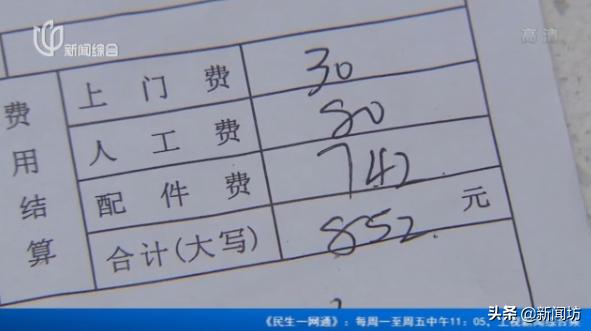 新闻综合
高清
费用结算
上门费 30
人工费 80
配件费 742
合计(大写) 852 元
《民生一网通》：每周一至周五中午11：05，
头条 @新闻坊